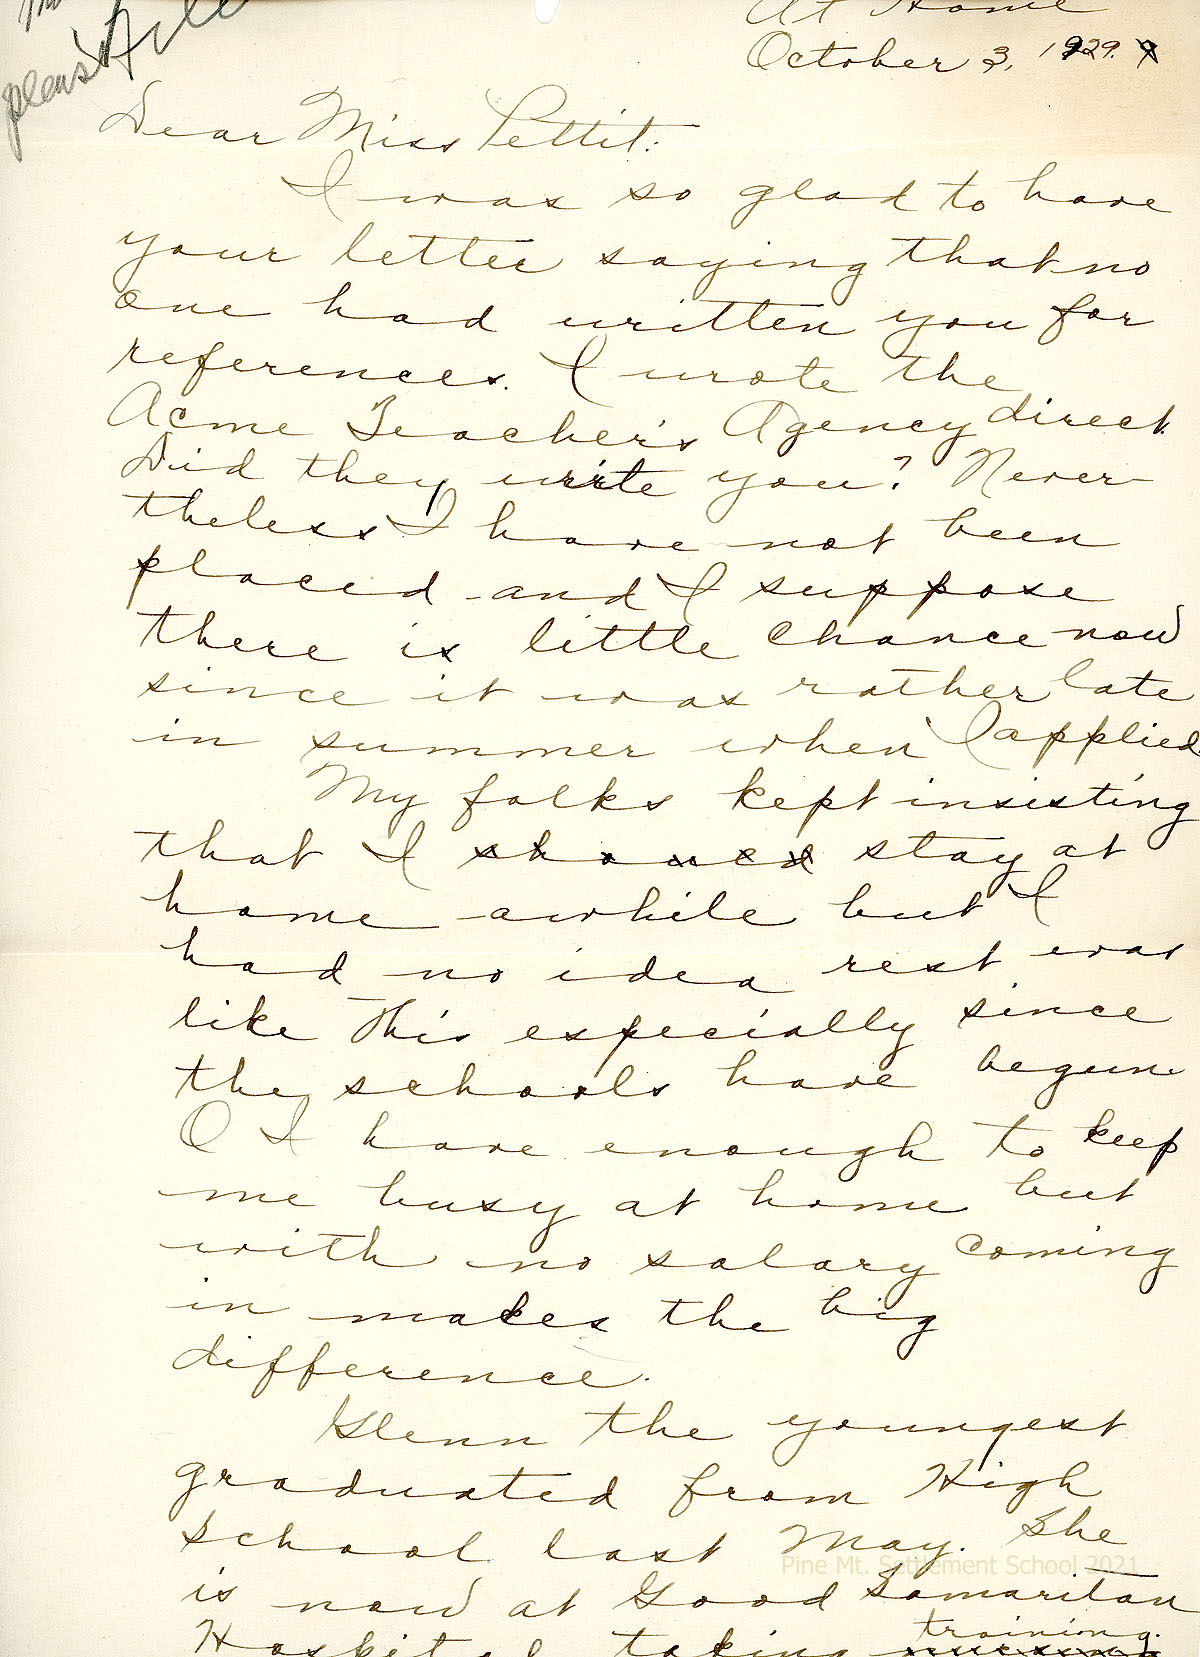 please File
At Home
October 3, 1929.
Dear Miss Pettit:
I was so glad to have
your letter saying that no
one had written you for
references. I wrote the
Acme Teacher's Agency direct.
Did they write you? Never-
theless I have not been
placed and I suppose
there is little chance now
since it was rather late
in summer when I applied.
My folks kept insisting
that I should stay at
home awhile but I
had no idea rest was
like this especially since
the schools have begun.
O I have enough to keep
me busy at home but
with no salary coming
in makes the big
difference.
Glenn the youngest
graduated from High
School last May. She
is now at Good Samaritan
Hospital taking training.
Pine Mt. Settlement School 2021